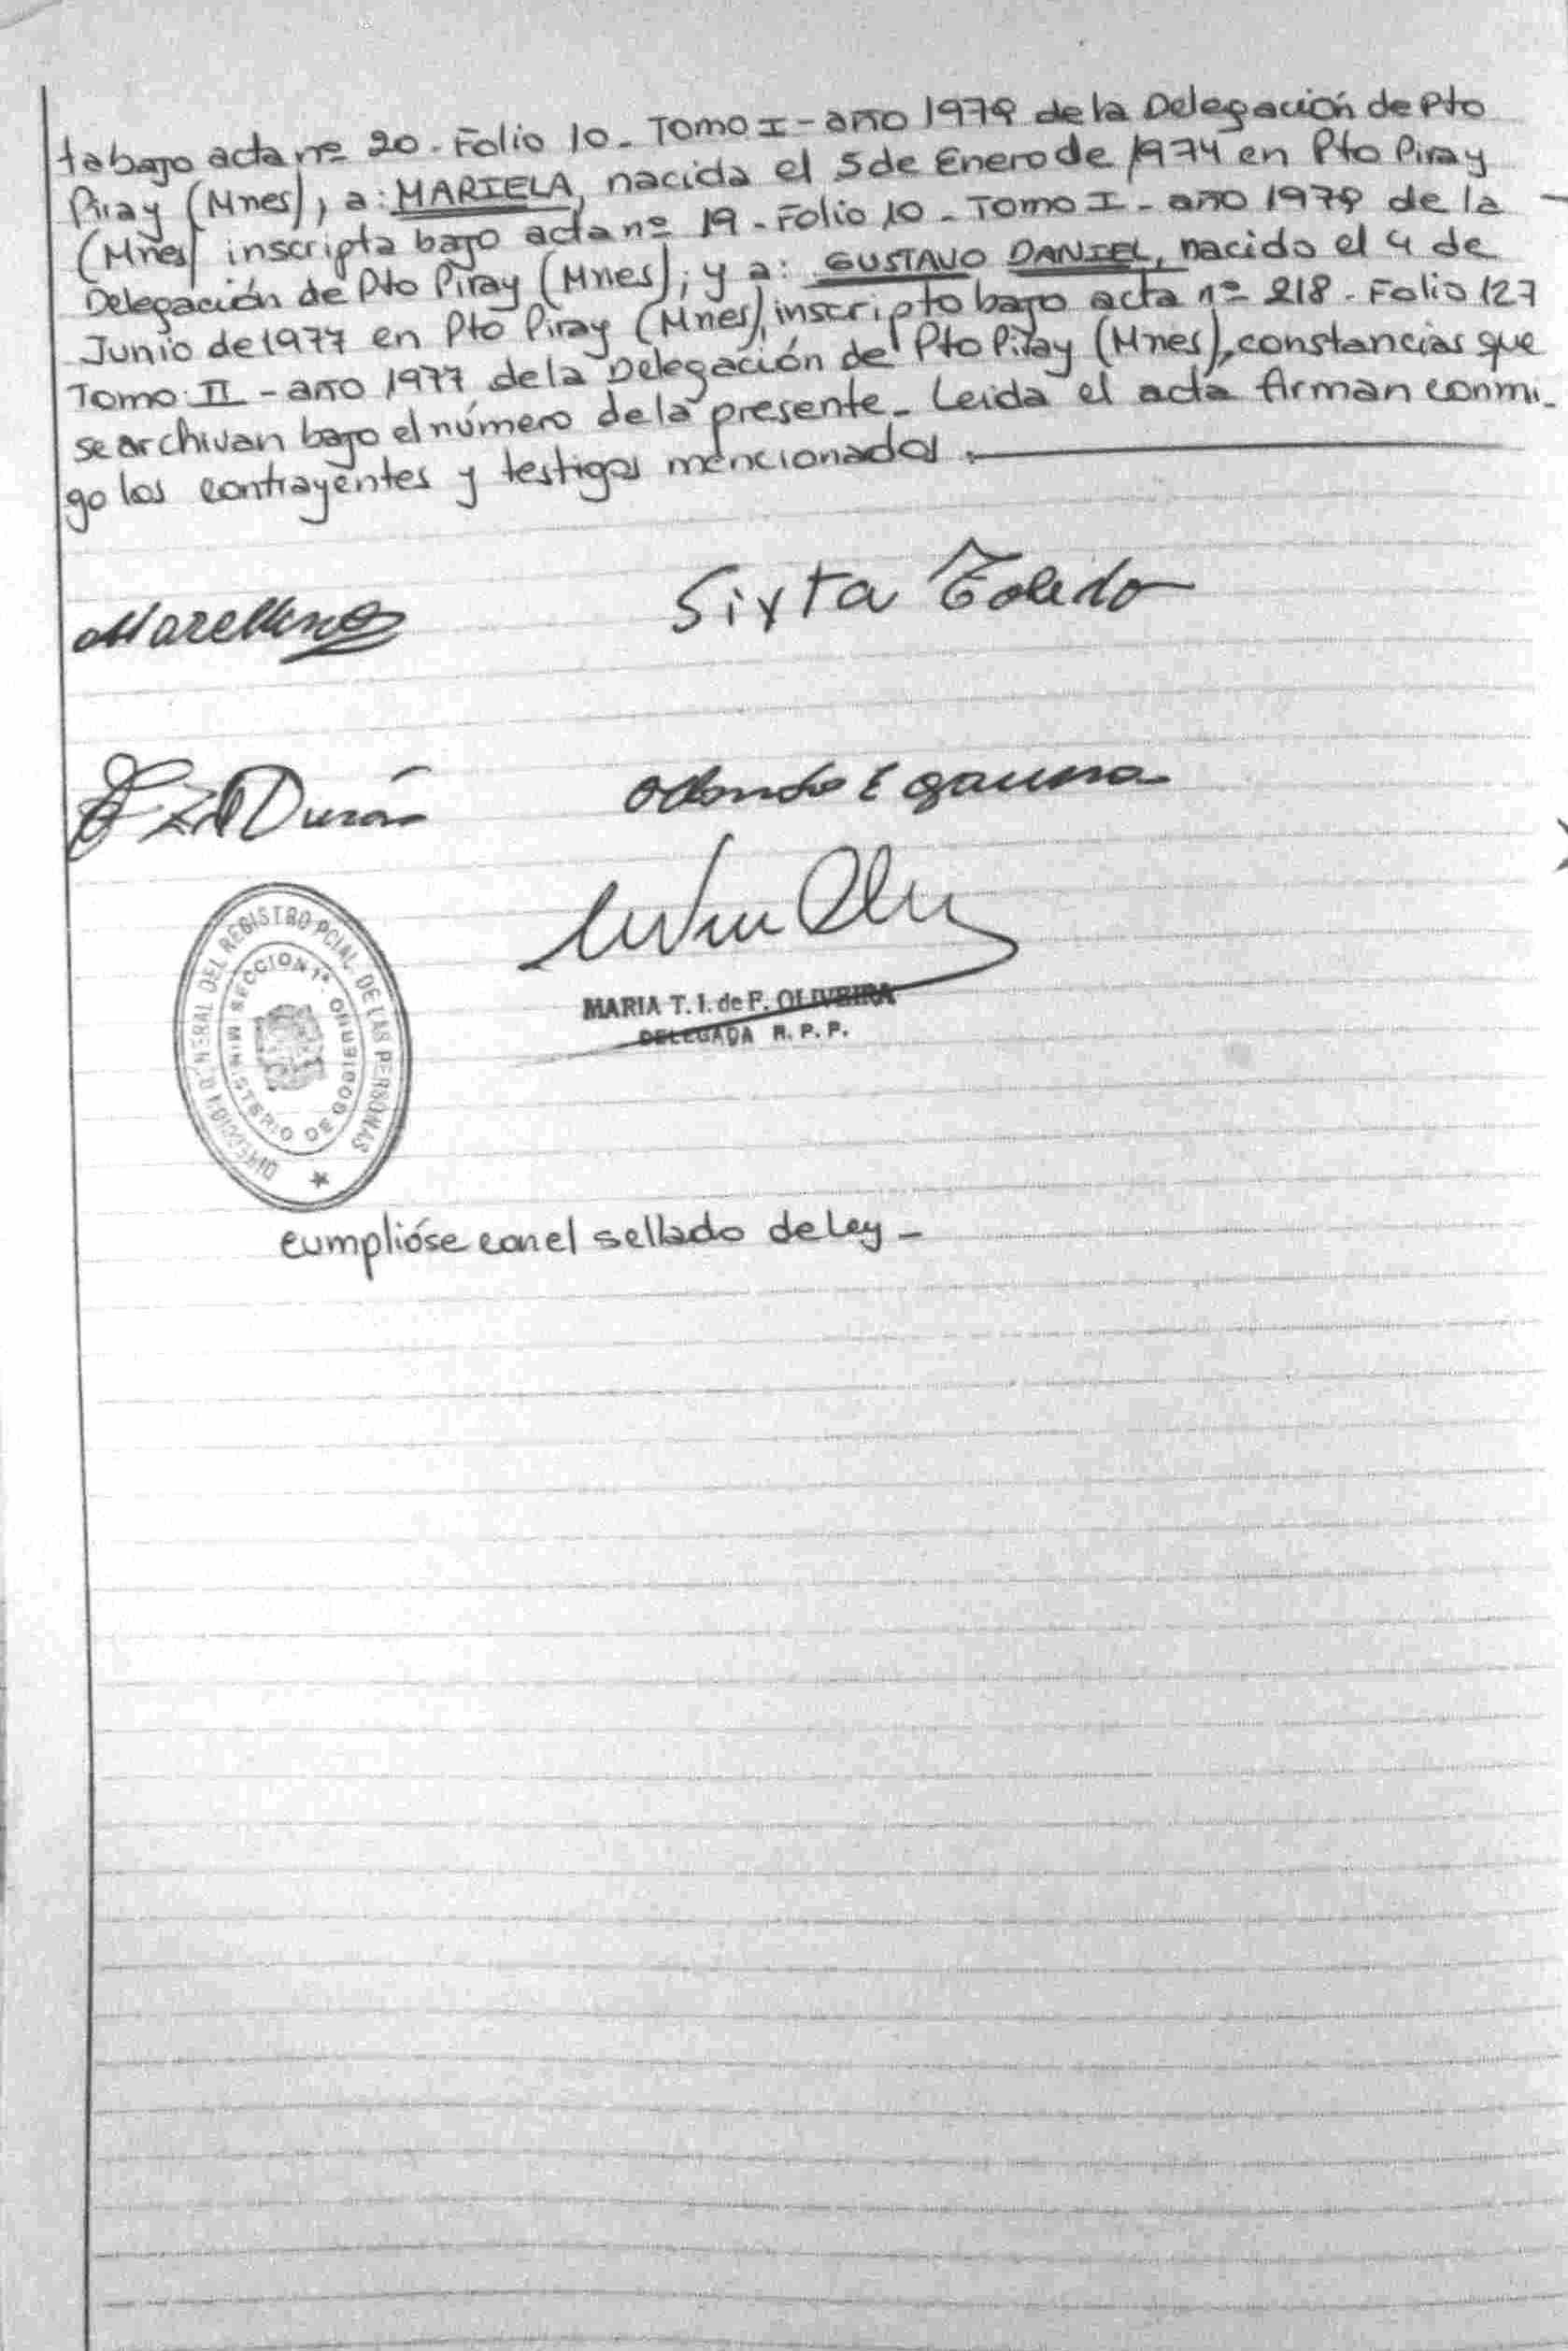 ta bajo acta nº 20 - Folio 10 - Tomo I - año 1979 de la Delegación de Pto
Piray (Mnes), a: MARIELA, nacida el 5 de Enero de 1974 en Pto Piray
(Mnes) inscripta bajo acta nº 19 - Folio 10 - Tomo I - año 1979 de la
Delegación de Pto Piray (Mnes); y a: GUSTAVO DANIEL, nacido el 4 de
Junio de 1977 en Pto Piray (Mnes), inscripto bajo acta nº 218 - Folio 127
Tomo: II - año 1977 de la Delegación de Pto Piray (Mnes), constancias que
se archivan bajo el número de la presente - Leida el acta firman conmi-
go los contrayentes y testigos mencionados.
Sixta Toledo
Durán
MARIA T. I. de F. OLIVEIRA
DELEGADA R. P. P.
DIRECCION GENERAL DEL REGISTRO PCIAL. DE LAS PERSONAS
MINISTERIO DE GOBIERNO
SECCION 1ª.
cumplióse con el sellado de Ley -